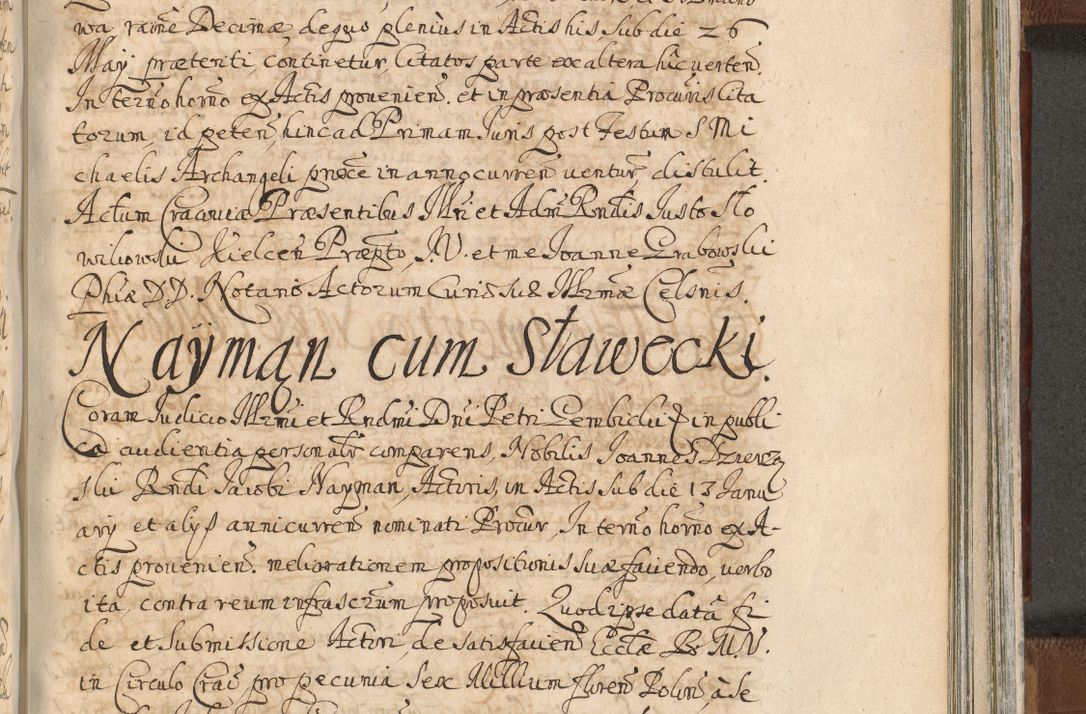 wa raõne Decimæ, de quo plenius in Actis his sub die 26
Maÿ prætenti, continetur, Citatos parte ex altera hic verten̄.
In termō hornō ex Actis provenien̄. et in præsentia Procuris Cita
torum, id peten̄, hinc ad Primam Juris post Festum S. Mi
chaelis Archangeli proxe in anno curren̄ ventur̄ distulit.
Actum Cracoviæ Præsentibus Mri et Adm Rndis Justo Sło
wikowski Kielcen̄ Præpto, J.V. et me Joanne Grabowski
Phiæ D.D. Notario Actorum Curiæ suæ Illrmæ Celsnis.
Naÿman cum Sławecki.
Coram Judicio Illrmi et Rndmi Dni Petri Gembicki in publi
ca audientia personalr comparens, Nobilis Joannes
ski Rndi Jacobi Nayman, Actoris, in Actis sub die 13 Janu
arÿ et alÿs anni curren̄ nominati Procur, In termō hornō ex A-
ctis provenien̄. meliorationem propositionis suæ faciendo, verbo
ita, contra reum infrascrum proposuit. Quod ipse datâ fi
de et submissione Actori, de satisfacien̄ Ecclæ B. M. V.
in Circulo Crac̄ pro pecunia Sex Millium floren̄ Polon̄, à se